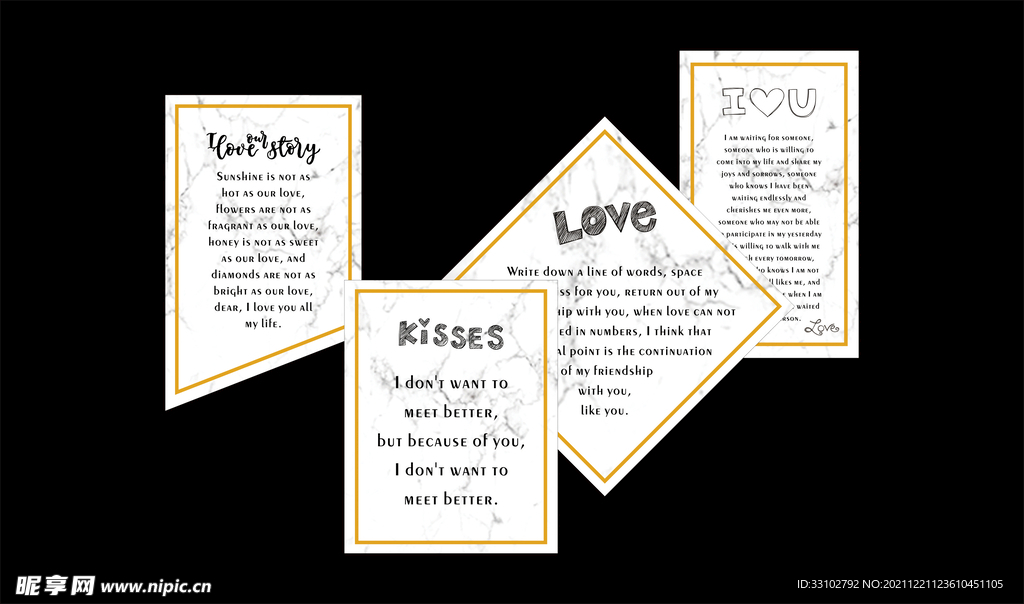 I love our story
Sunshine is not as
hot as our love,
flowers are not as
fragrant as our love,
honey is not as sweet
as our love, and
diamonds are not as
bright as our love,
dear, I love you all
my life.
KiSSES
I don't want to
meet better,
but because of you,
I don't want to
meet better.
LOVE
Write down a line of words, space
ss for you, return out of my
ip with you, when love can not
ed in numbers, I think that
al point is the continuation
of my friendship
with you,
like you.
I♡U
I am waiting for someone,
someone who is willing to
come into my life and share my
joys and sorrows, someone
who knows I have been
waiting endlessly and
cherishes me even more,
someone who may not be able
participate in my yesterday
is willing to walk with me
h every tomorrow,
ho knows I am not
ll likes me, and
when I am
waited
erson.
Love
昵享网 www.nipic.cn
ID:33102792 NO:20211221123610451105